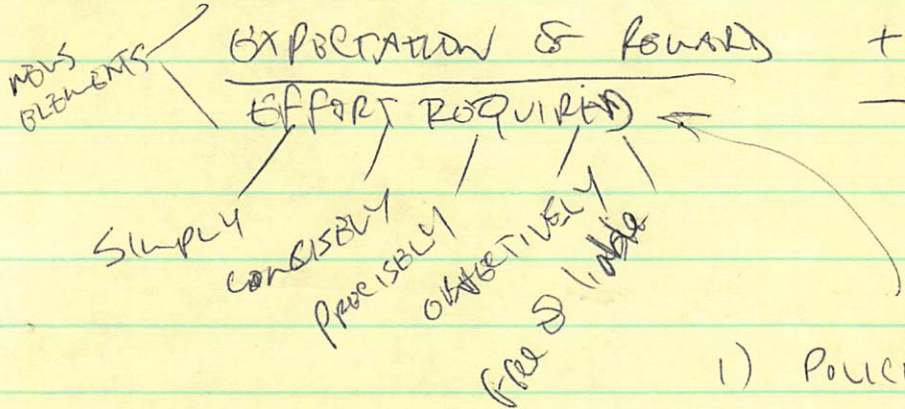 NEWS
ELEMENTS
EXPECTATION OF REWARD +
EFFORT REQUIRED -
SIMPLY
CONCISELY
PRECISELY
OBJECTIVELY
free of
1) POLICI